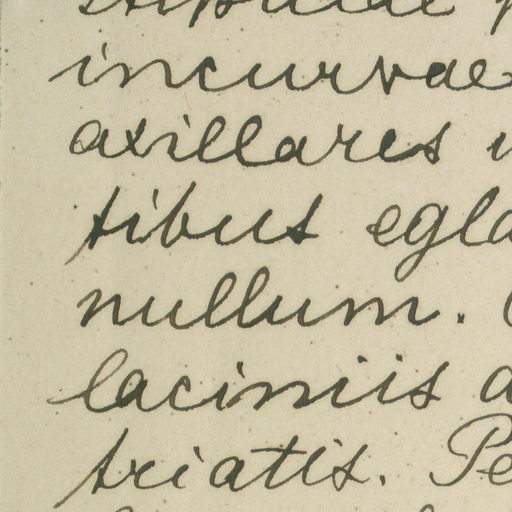 stipulae
incurvae
axillares
tibus egla
nullum.
laciniis
triatis. Pe